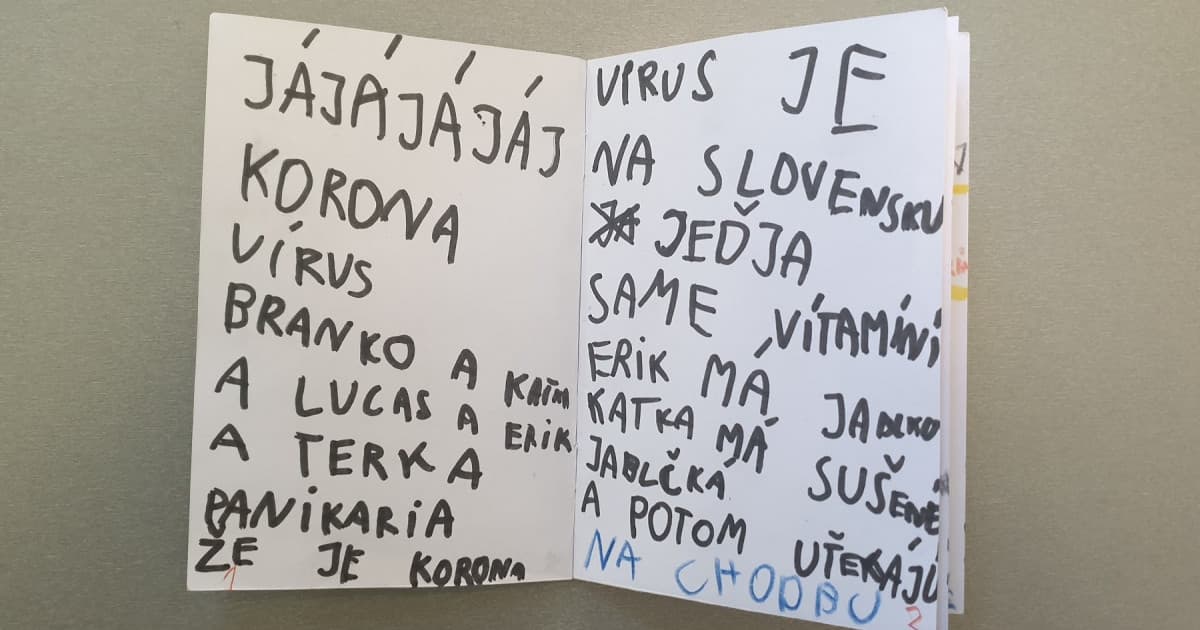 JÁJÁJÁJÁJ
KORONA
VÍRUS
BRANKO A KATKA
A LUCAS A ERiK
A TERKA
PANiKARiA
ŽE JE KORONA
1
VIRUS JE
NA SLOVENSKU
JEĎJA
SAME VíTAMíNí
ERiK MÁ JABLKO
KATKA MÁ SUŠENÉ
JABLČKÁ
A POTOM UŤEKÁJÚ
NA CHODBU
2